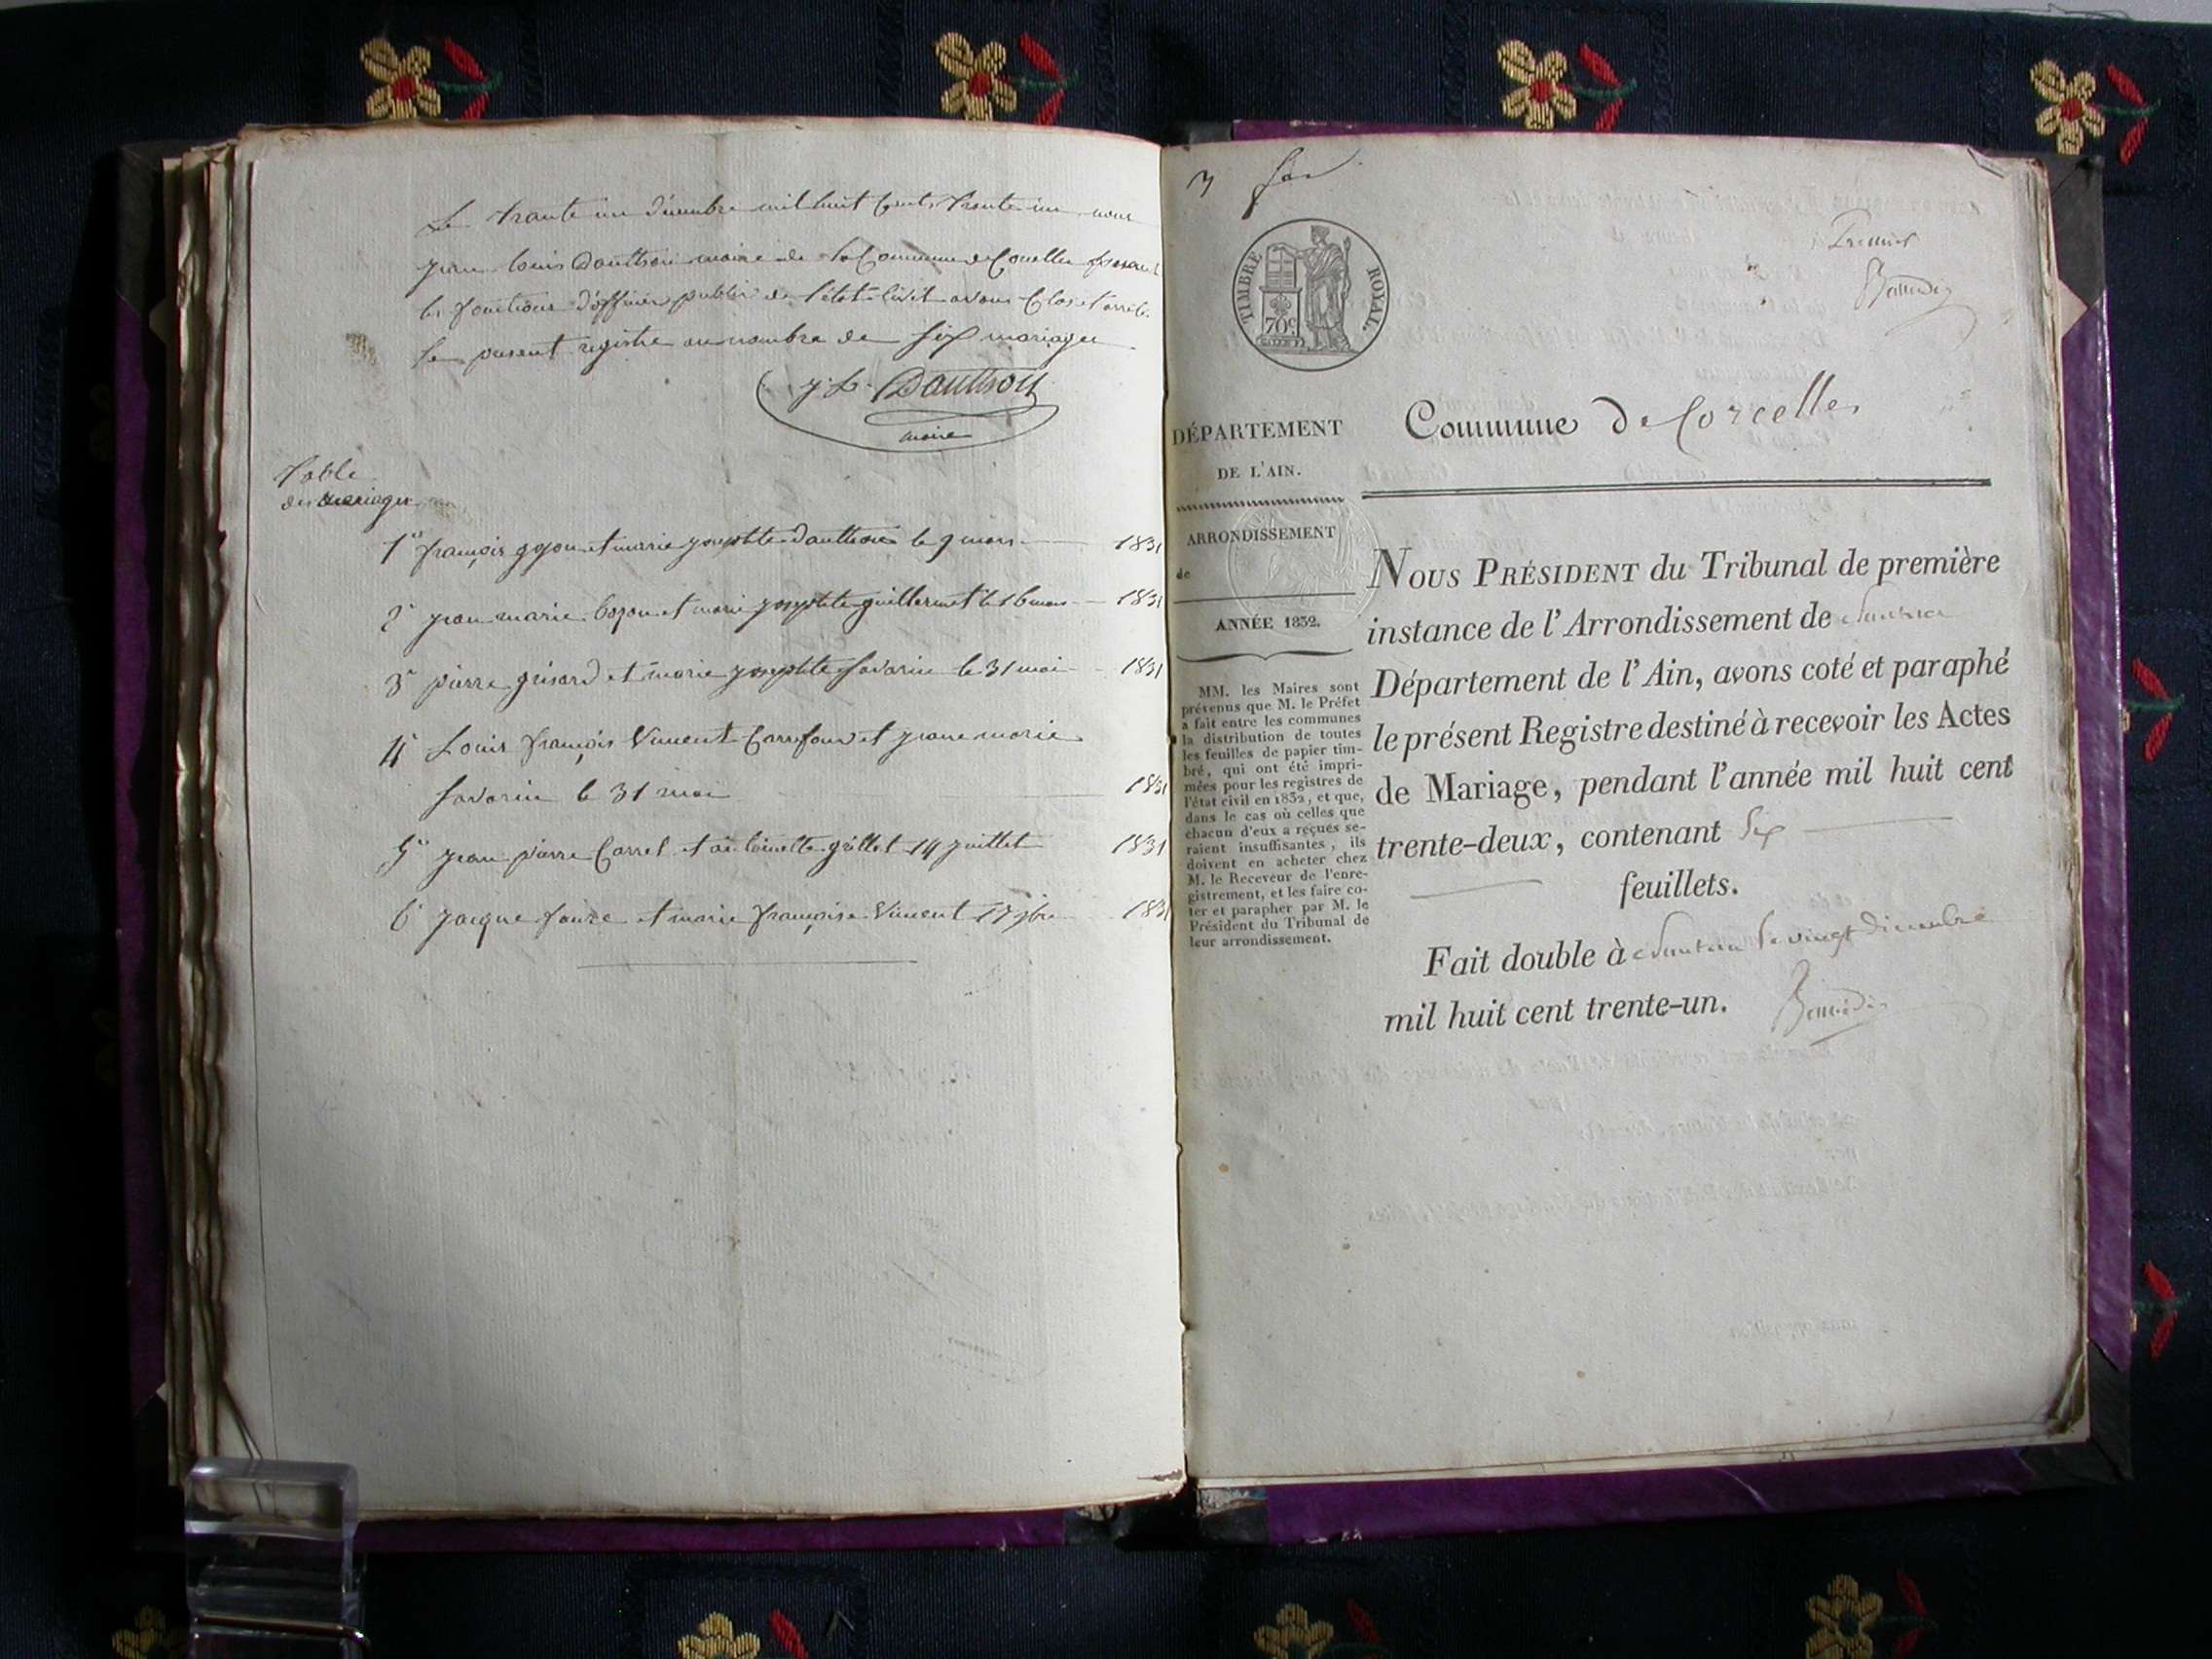 Le trante un décembre mil huit cents trente un nous
jean louis Dauthon maire de la Commune de Corcelles faisant
les fonctions d'officier public de l'état civil avons Clos et arrêté
le present registre au nombre de six mariages
j. L. Dauthon
maire
Table
des mariages
1° françois goyon et marie josephte dauthon le 9 mars 1831
2° jean marie bozon et marie josephte guillermet le 16 mars 1831
3° pierre grisard et marie josephte savarin le 31 mai 1831
4° Louis françois Vincent Carrefour et jeane marie
savarin le 31 mai 1831
5° jean pierre Carrel et grillet 14 juillet 1831
6° jacque et marie françoise Vincent 17 9bre 1831
3 f
TIMBRE ROYAL.
70c
Premier
DÉPARTEMENT
DE L'AIN.
Commune De Corcelles
ARRONDISSEMENT
de
ANNÉE 1832.
MM. les Maires sont
prévenus que M. le Préfet
a fait entre les communes
la distribution de toutes
les feuilles de papier tim-
bré, qui ont été impri-
mées pour les registres de
l'état civil en 1832, et que,
dans le cas où celles que
chacun d'eux a reçues se-
raient insuffisantes, ils
doivent en acheter chez
M. le Receveur de l'enre-
gistrement, et les faire co-
ter et parapher par M. le
Président du Tribunal de
leur arrondissement.
NOUS PRÉSIDENT du Tribunal de première
instance de l'Arrondissement de Nantua
Département de l'Ain, avons coté et paraphé
le présent Registre destiné à recevoir les Actes
de Mariage, pendant l'année mil huit cent
trente-deux, contenant Six
feuillets.
Fait double à Nantua le vingt décembre
mil huit cent trente-un.